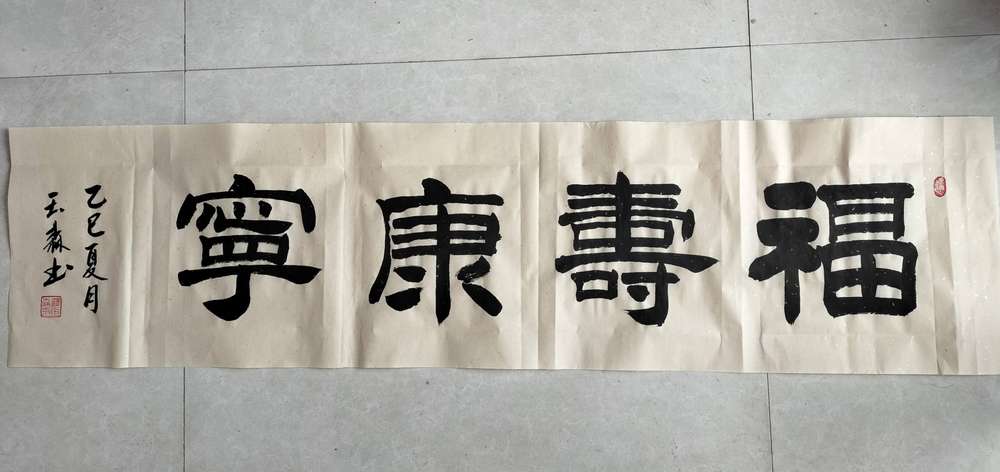 福壽康寧
乙巳夏月
玉森书